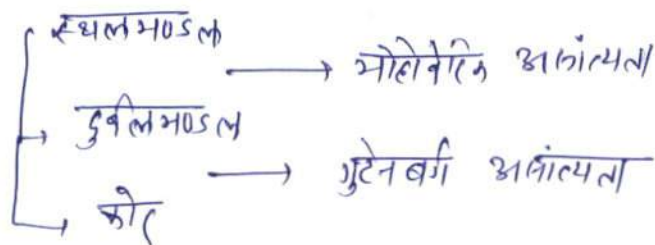 स्थलमण्डल
मोहोवेरिक असांत्यता
दुर्बलमण्डल
गुटेनबर्ग असांत्यता
कोर